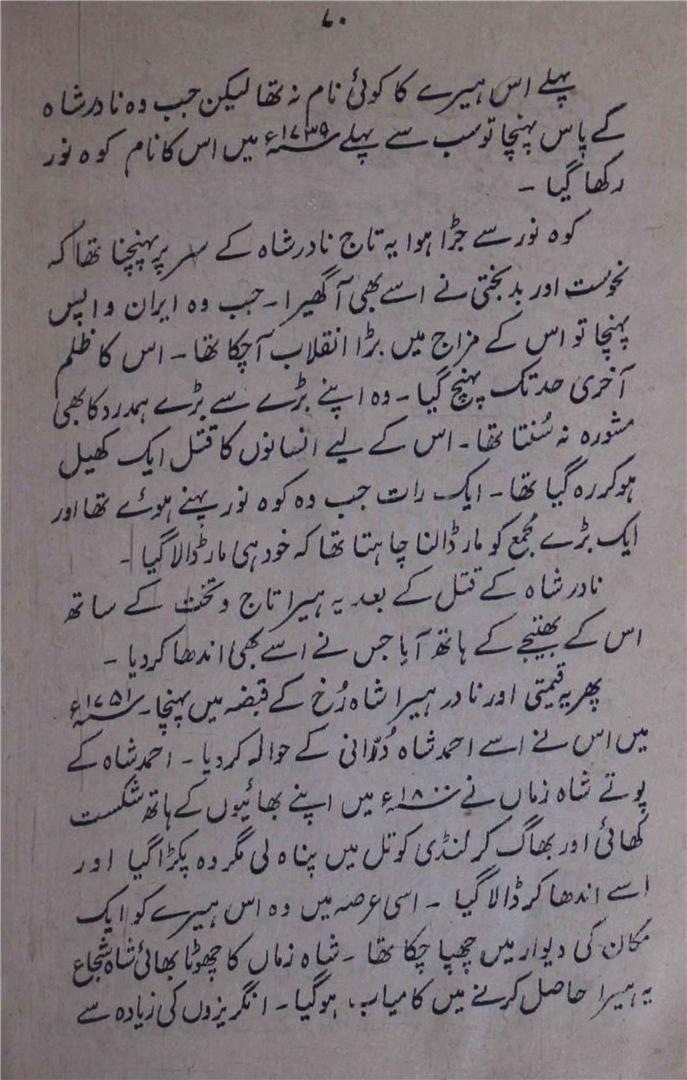 ۷۰
پہلے اس ہیرے کا کوئی نام نہ تھا لیکن جب وہ نادر شاہ
کے پاس پہنچا تو سب سے پہلے ۱۷۳۹ء میں اس کا نام کوہ نور
رکھا گیا ۔
کوہ نور سے جڑا ہوا یہ تاج نادر شاہ کے سر پر پہنچنا تھا کہ
نحوست اور بدبختی نے اسے بھی آ گھیرا ۔ جب وہ ایران واپس
پہنچا تو اس کے مزاج میں بڑا انقلاب آ چکا تھا ۔ اس کا ظلم
آخری حد تک پہنچ گیا ۔ وہ اپنے بڑے سے بڑے ہمدرد کا بھی
مشورہ نہ سُنتا تھا ۔ اس کے لیے انسانوں کا قتل ایک کھیل
ہو کر رہ گیا تھا ۔ ایک رات جب وہ کوہ نور پہنے ہوئے تھا اور
ایک بڑے مجمع کو مار ڈالنا چاہتا تھا کہ خود ہی مار ڈالا گیا ۔
نادر شاہ کے قتل کے بعد یہ ہیرا تاج و تخت کے ساتھ
اس کے بھتیجے کے ہاتھ آیا جس نے اسے بھی اندھا کر دیا ۔
پھر یہ قیمتی اور نادر ہیرا شاہ رُخ کے قبضہ میں پہنچا ۔ ۱۷۵۱ء
میں اس نے اسے احمد شاہ دُرّانی کے حوالہ کر دیا ۔ احمد شاہ کے
پوتے شاہ زماں نے ۱۸۰۰ء میں اپنے بھائیوں کے ہاتھ شکست
کھائی اور بھاگ کر لنڈی کوتل میں پناہ لی مگر وہ پکڑا گیا اور
اسے اندھا کر ڈالا گیا ۔ اسی عرصہ میں وہ اس ہیرے کو ایک
مکان کی دیوار میں چھپا چکا تھا ۔ شاہ زماں کا چھوٹا بھائی شاہ شجاع
یہ ہیرا حاصل کرنے میں کامیاب ہو گیا ۔ انگریزوں کی زیادہ سے